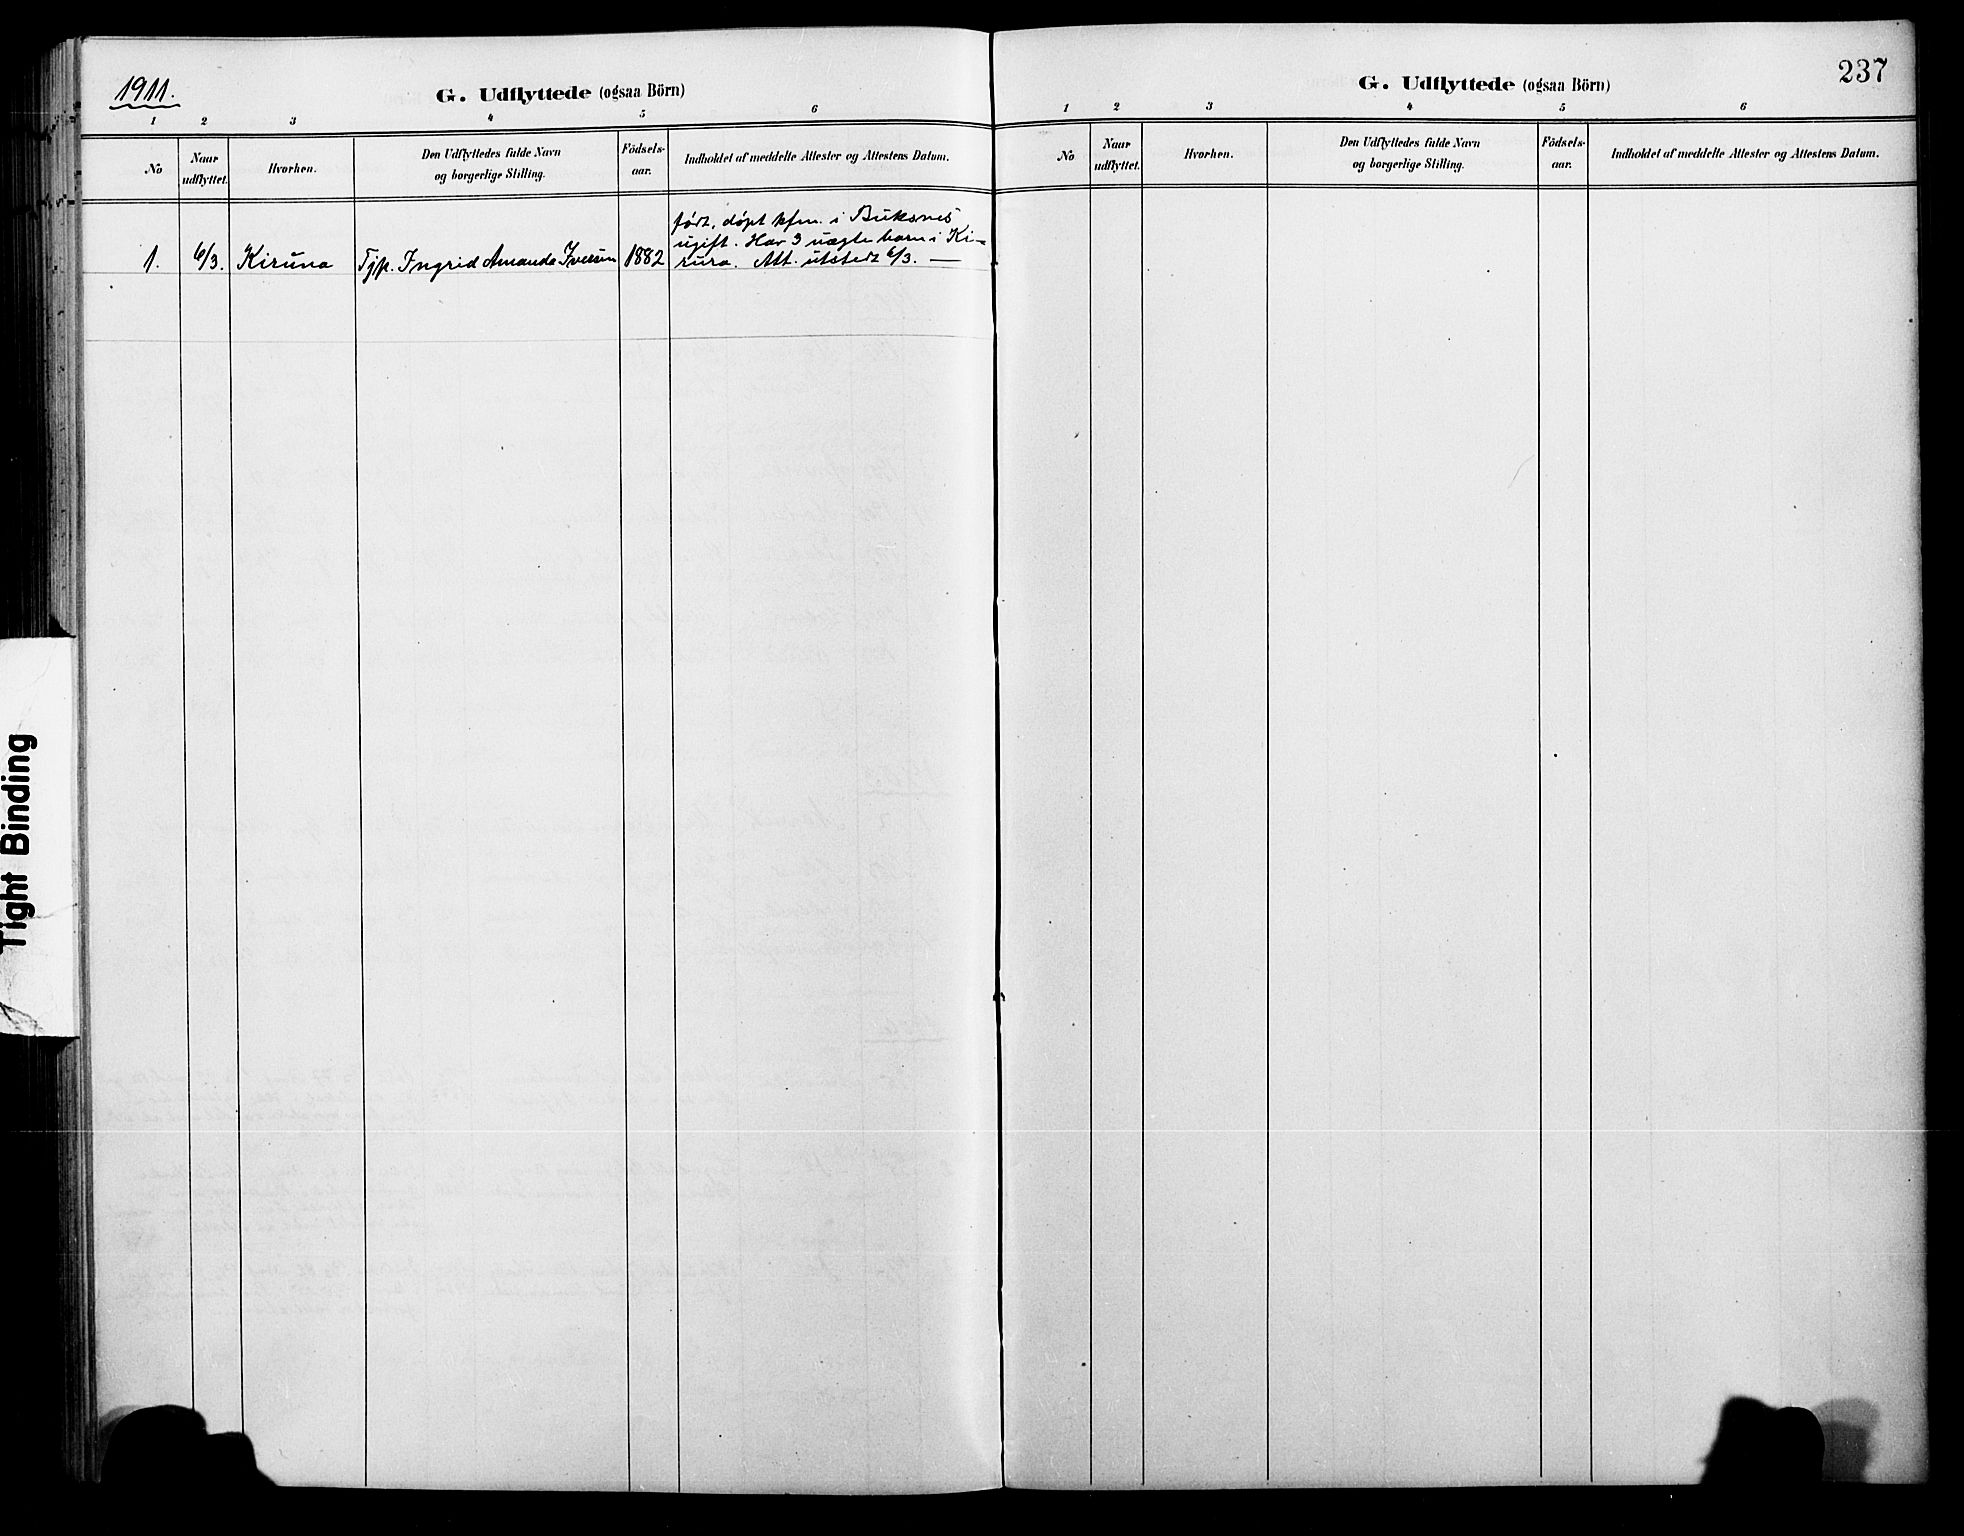 1911.
G. Udflyttede (ogsaa Börn)
1 2 3 4 5 6
No
Naar udflyttet.
Hvorhen.
Den Udflyttedes fulde Navn
og borgerlige Stilling.
Födsels-
aar.
Indholdet af meddelte Attester og Attestens Datum.
født, døpt kfm. i Buksnes
ugift. Har 3 uægte barn i Ki-
1. 6/3. Kiruna Tjp. Ingrid Amanda Iversen 1882 runa. Att. utstedt 6/3. —
237
G. Udflyttede (ogsaa Börn)
1 2 3 4 5 6
No
Naar
udflyttet.
Hvorhen.
Den Udflyttedes fulde Navn
og borgerlige Stilling.
Födsels-
aar.
Indholdet af meddelte Attester og Attestens Datum.
Tight Binding